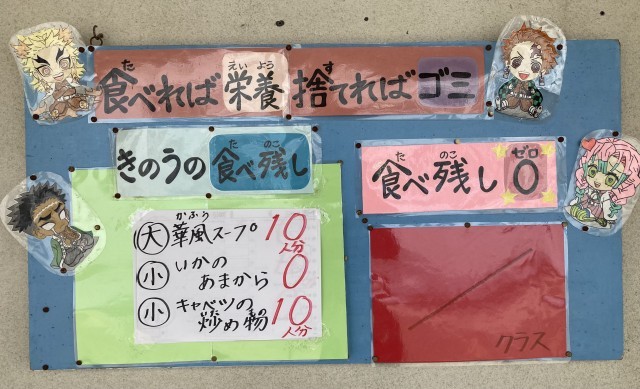 食べれば栄養 捨てればゴミ
きのうの食べ残し
大 華風スープ 10人分
小 いかのあまから 0
小 キャベツの炒め物 10人分
食べ残し0
クラス